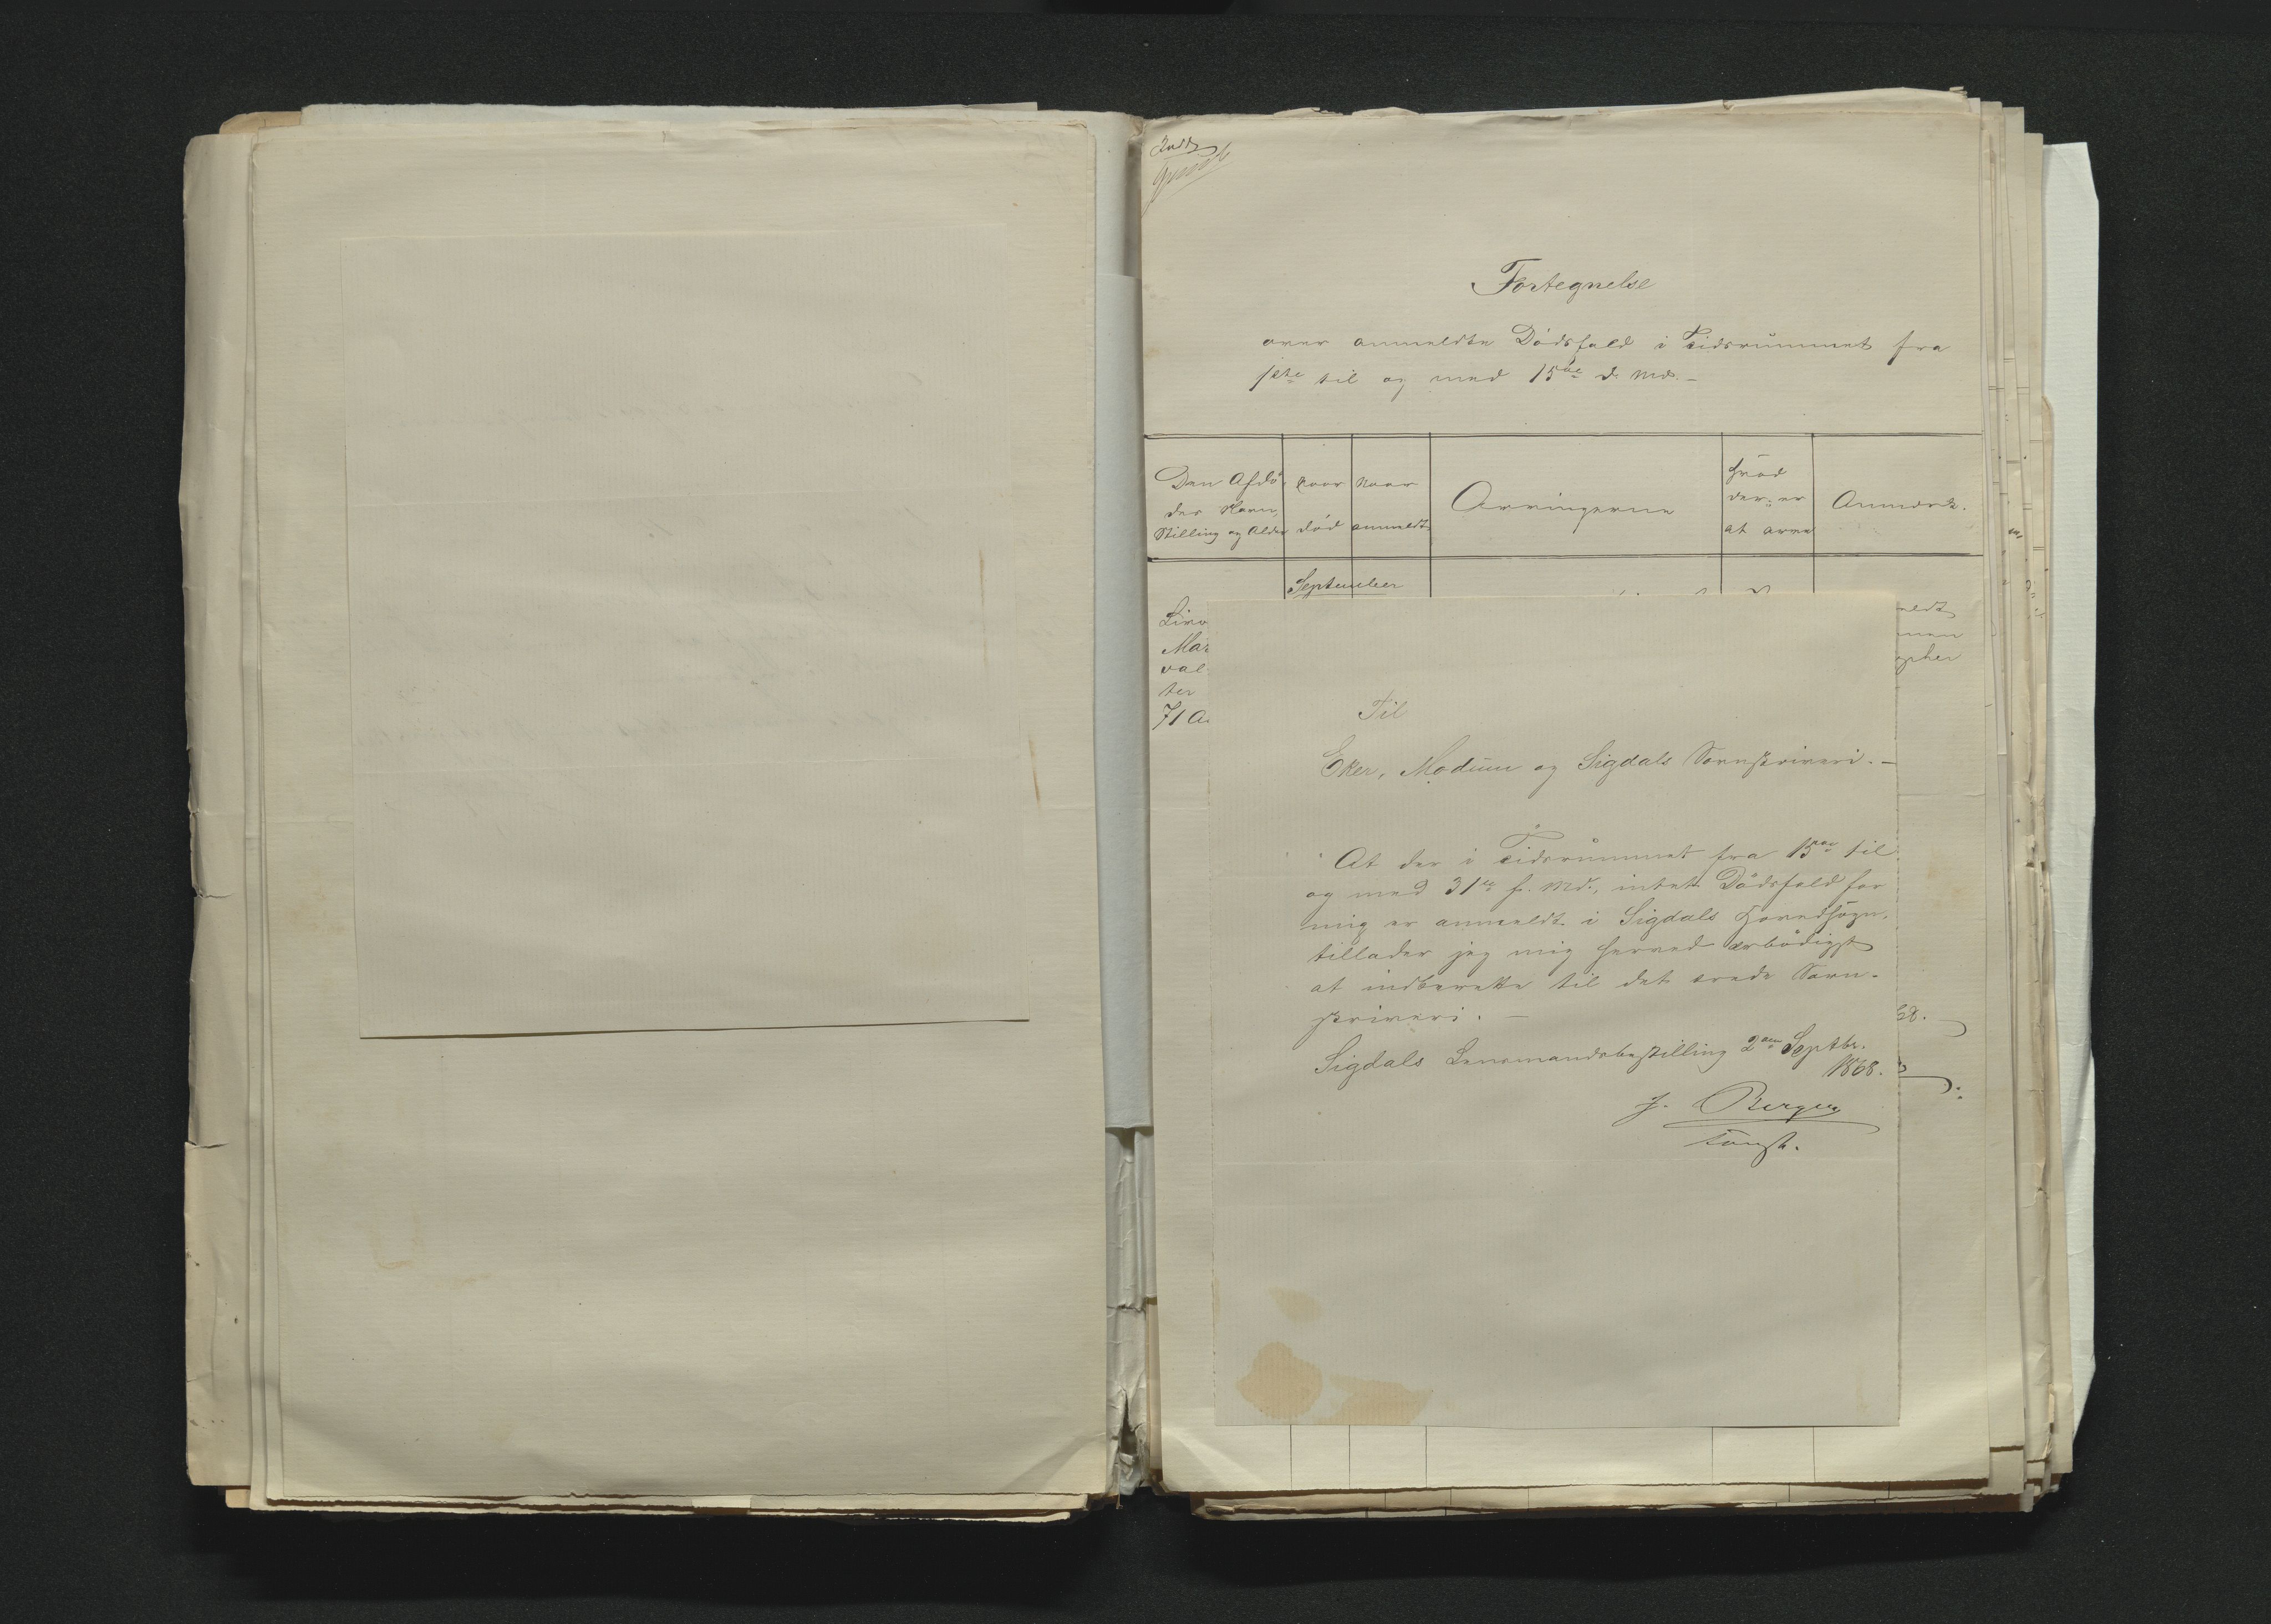 Fortegnelse
over anmeldte Dödsfald i Tidsrummet fra
1ste til og med 15de d. Md. –
Den Afdö-
des Navn,
Stilling og Alder
naar
död
naar
anmeldt
Arvingerne
Hvad
der er
at arve
Anmærk.
September
Mar
val
ter
71 Aa
Til
Eker, Modum og Sigdals Sorenskriveri. –
At der i Tidsrummet fra 15de til
og med 31te f. Md., intet Dödsfald for
mig er anmeldt i Sigdals Hovedsogn,
tillader jeg mig herved ærbödigst
at indberette til det ærede Soren-
skriveri. –
Sigdals Lensmandsbestilling 2den Septbr.
1868.
J. Bergen
konst.